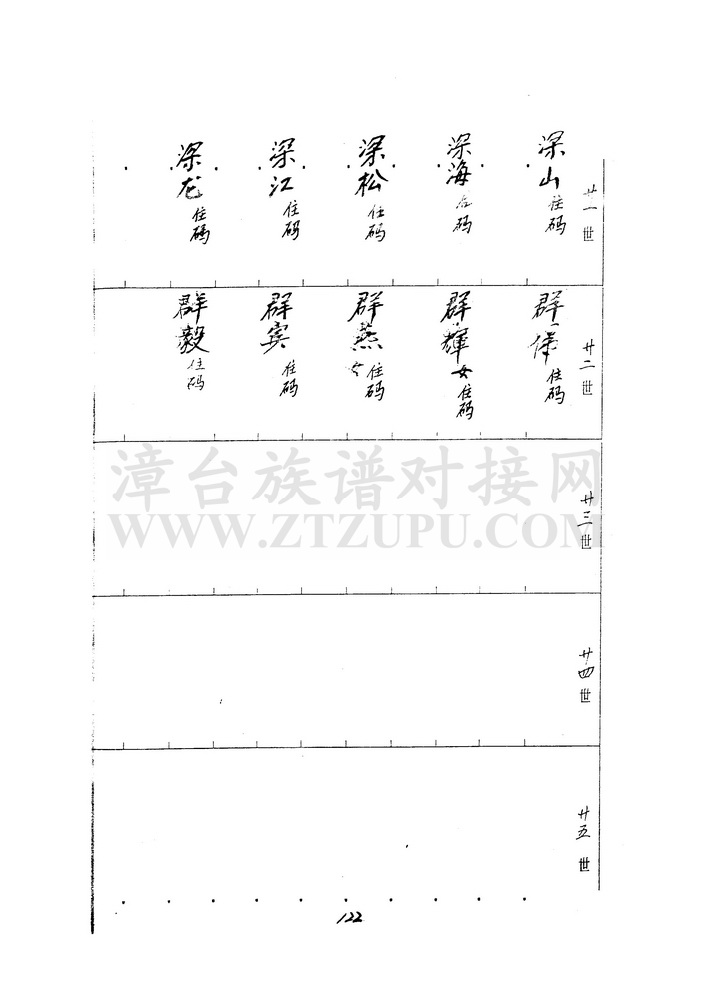 廿一世
深山 住码
深海 住码
深松 住码
深江 住码
深龙 住码
廿二世
群 住码
群辉 女 住码
群燕 女 住码
群宾 住码
群毅 住码
廿三世
廿四世
廿五世
122
漳台族谱对接网
WWW.ZTZUPU.COM